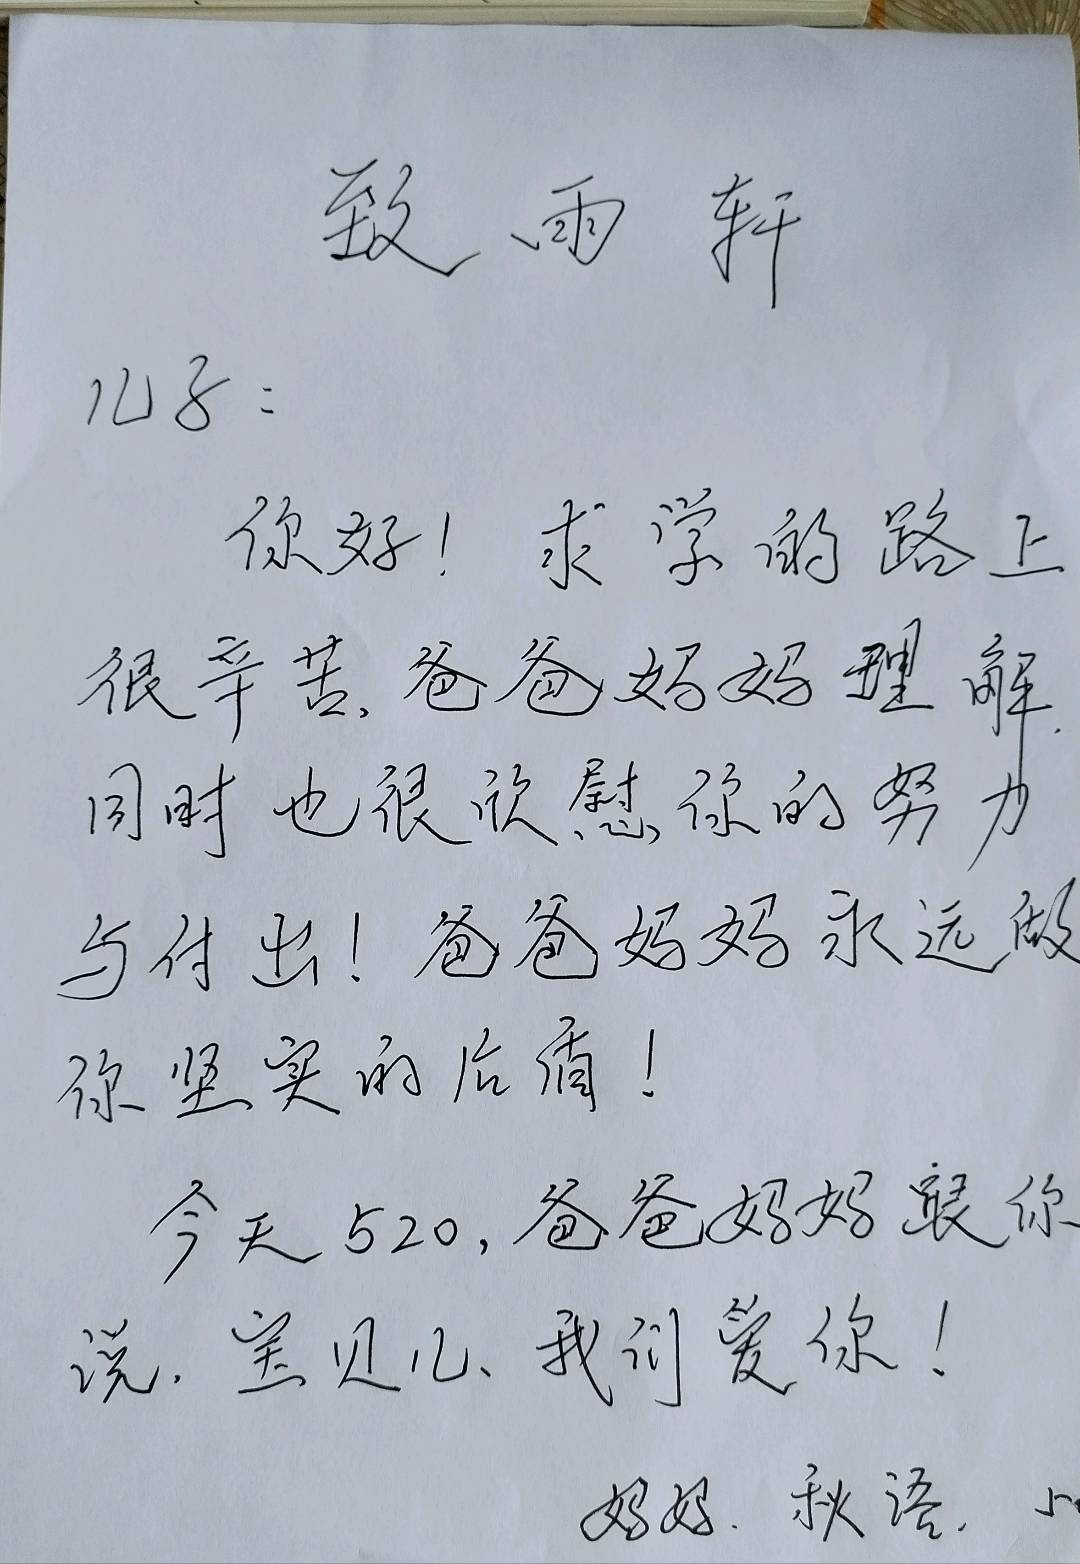 致雨轩
儿子：
你好！求学的路上
很辛苦，爸爸妈妈理解，
同时也很欣慰你的努力
与付出！爸爸妈妈永远做
你坚实的后盾！
今天520，爸爸妈妈跟你
说，宝贝儿、我们爱你！
妈妈.秋语.